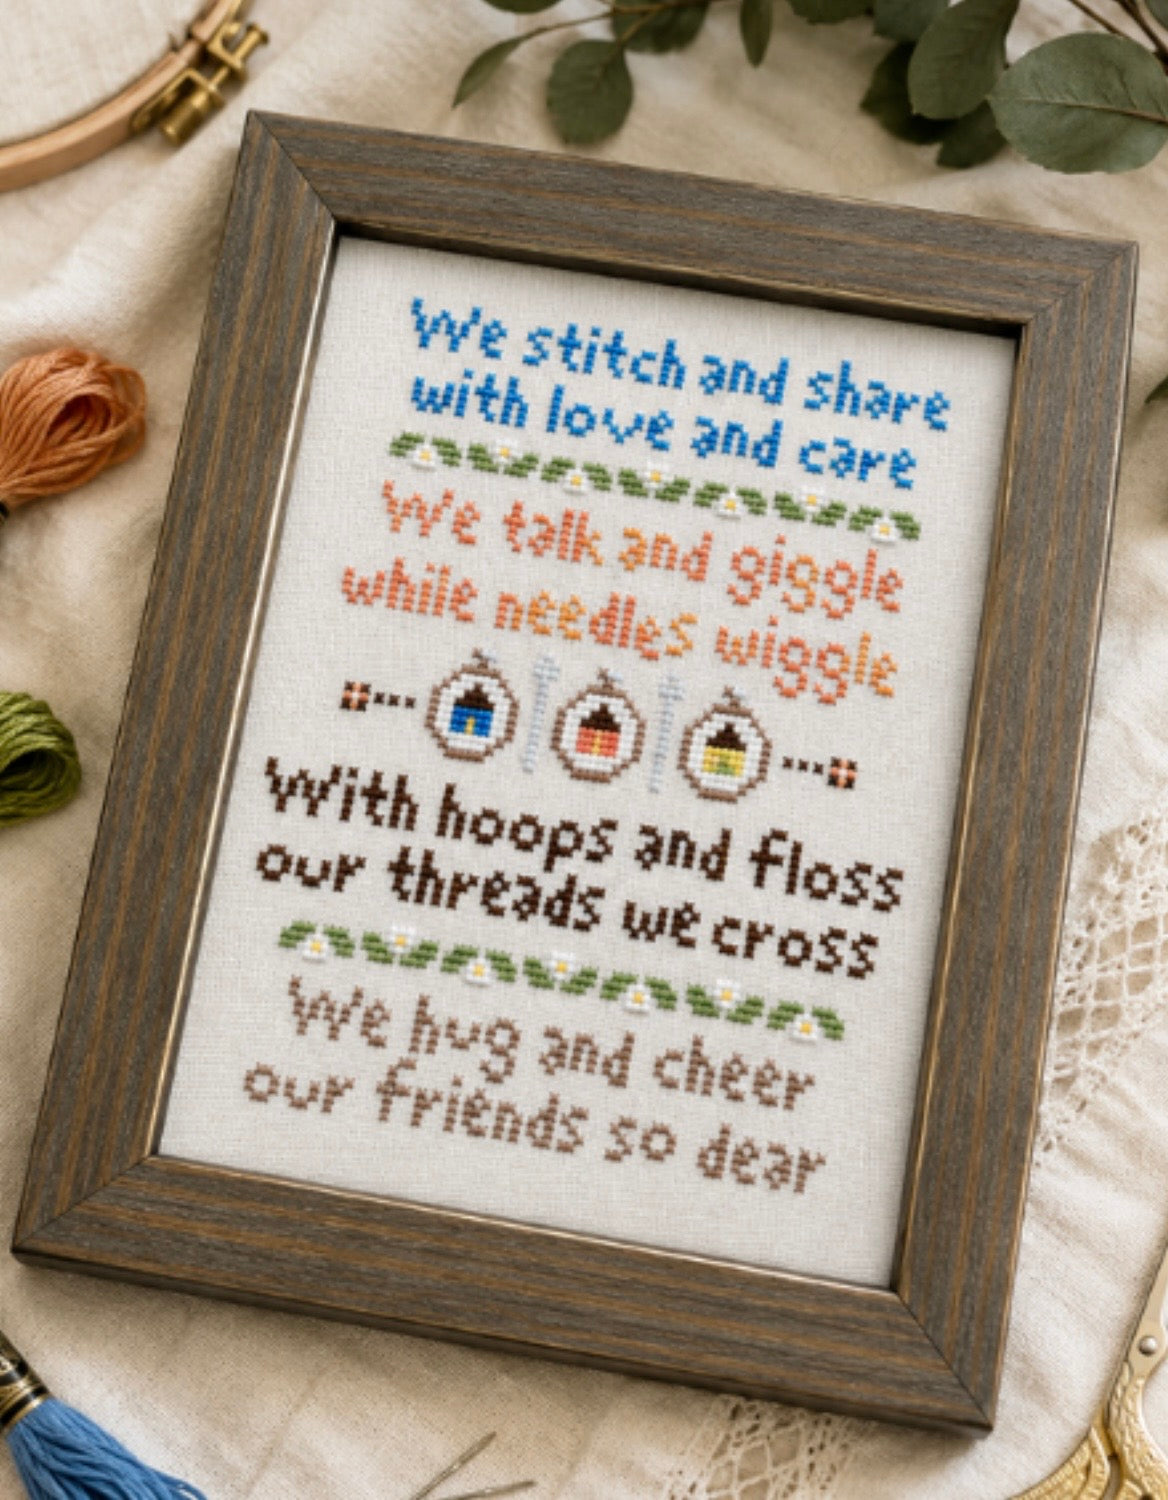 We stitch and share
with love and care
We talk and giggle
while needles wiggle
With hoops and floss
our threads we cross
We hug and cheer
our friends so dear